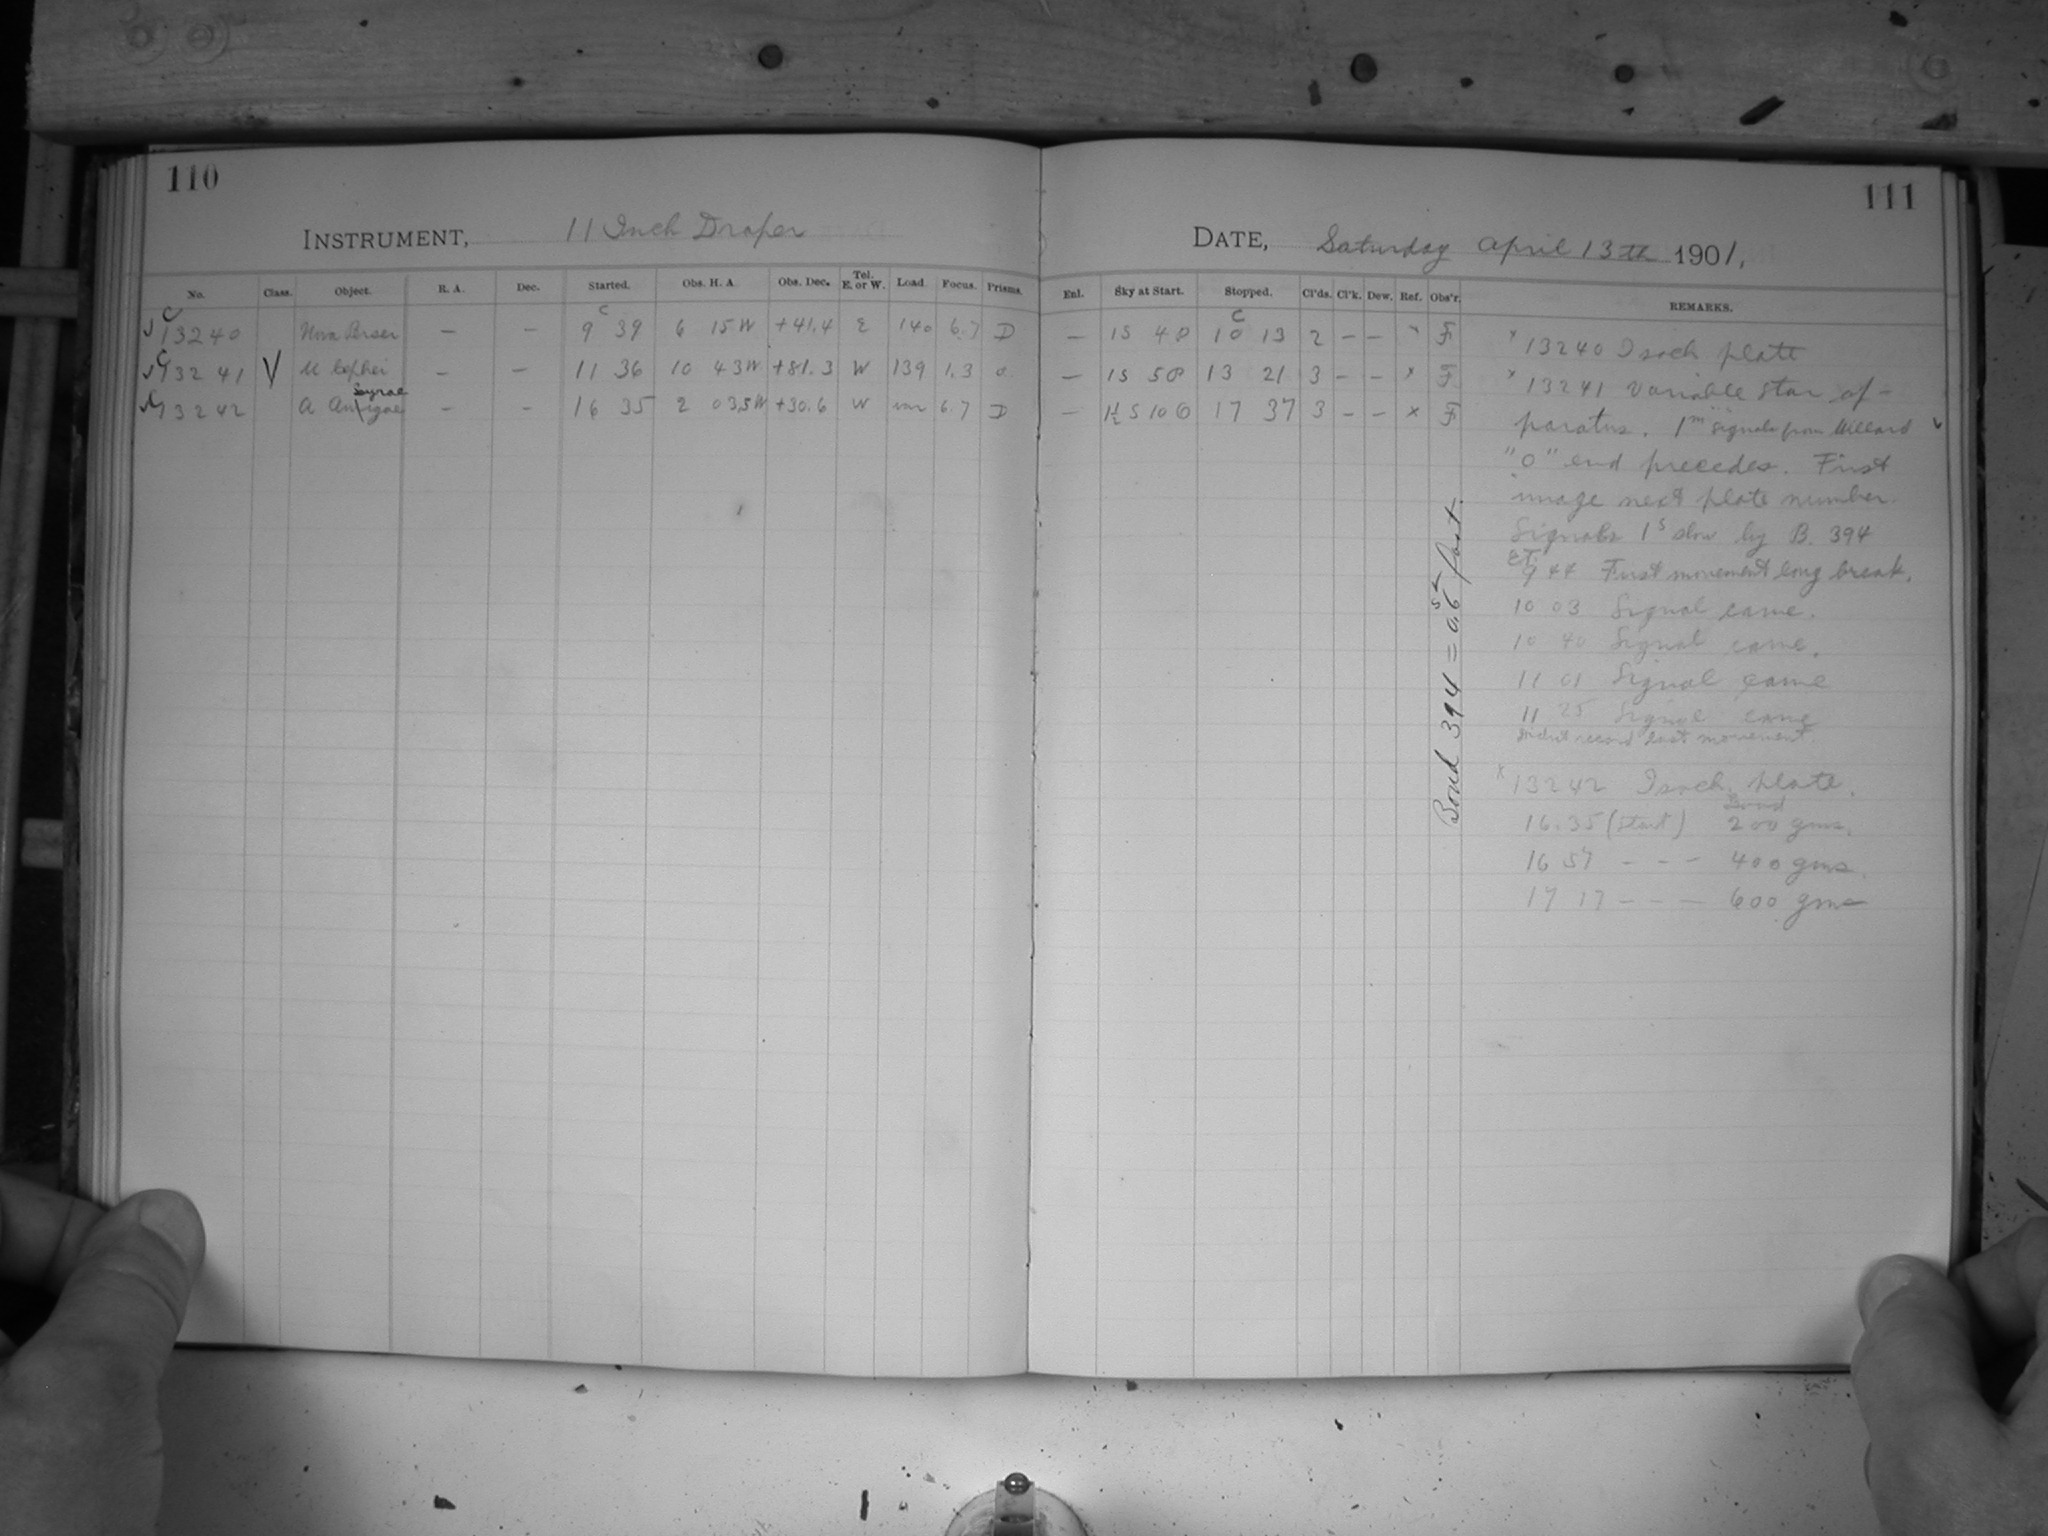 110
INSTRUMENT, 11 Inch Draper
No. Class. Object. R. A. Dec. Started. Obs. H. A. Obs. Dec. Tel. E. or W. Load Focus. Prisms.
C 13240 Nova Persei — — C 9 39 6 15 W +41.4 E 140 6.7 D
C 13241 V U Cephei — — 11 36 10 43 W +81.3 W 139 1.3 0
C 13242 A Lyrae — — 16 35 2 03.5 W +30.6 W var 6.7 D
111
DATE, Saturday April 13th 1901,
Enl. Sky at Start. Stopped. Cl'ds. Cl'k. Dew. Ref. Obs'r. REMARKS.
— 1S 4P C 10 13 2 — — x F
— 1S 5P 13 21 3 — — x F
— S 10 17 37 3 — — x F
x 13240 Isoch plate
x 13241 Variable Star ap-
paratus. 1m signals from Willard
"0" end precedes. First
image next plate number.
Signals 1s slow by B. 394
E.T. 9 44 First movement long break.
10 03 Signal came.
10 40 Signal came.
11 01 Signal came
11 25 Signal came
record last movement.
x 13242 Isoch. plate.
16.35 (start) 200 gms.
16 57 – – – 400 gms.
17 17 – – – 600 gms
Bond 394 = 0.6s fast.